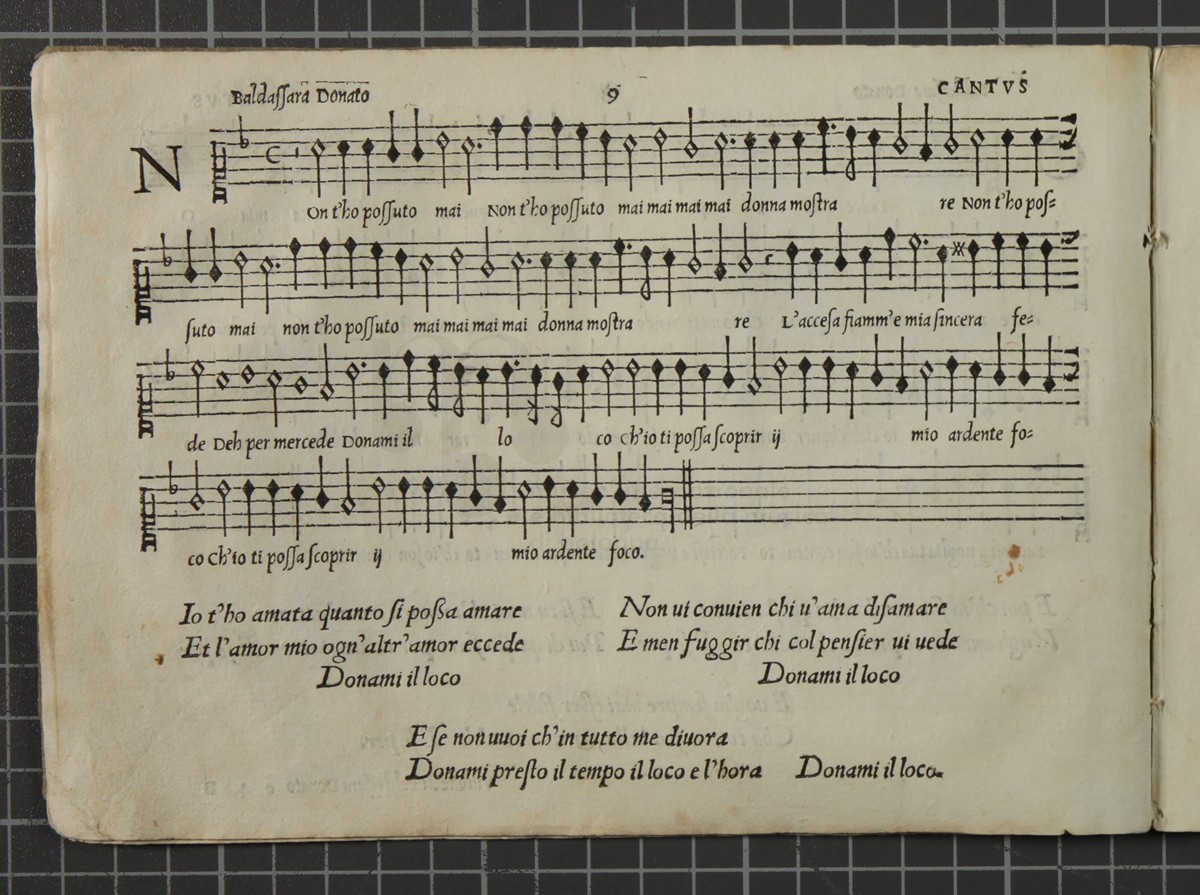 Baldaſſara Donato 9 CANTVS
NOn t'ho poſſuto mai Non t'ho poſſuto mai mai mai mai donna moſtra re Non t'ho poſ=
ſuto mai non t'ho poſſuto mai mai mai mai donna moſtra re L'acceſa fiamm'e mia ſincera fe=
de Deh per mercede Donami il lo co Ch'io ti poſſa ſcoprir ij mio ardente fo=
co Ch'io ti poſſa ſcoprir ij mio ardente foco.
Io t'ho amata quanto ſi poßa amare
Et l'amor mio ogn'altr'amor eccede
Donami il loco
Non ui conuien chi u'ama diſamare
E men fuggir chi col penſier ui uede
Donami il loco
E ſe non uuoi ch'in tutto me diuora
Donami preſto il tempo il loco e l'hora Donami il loco.